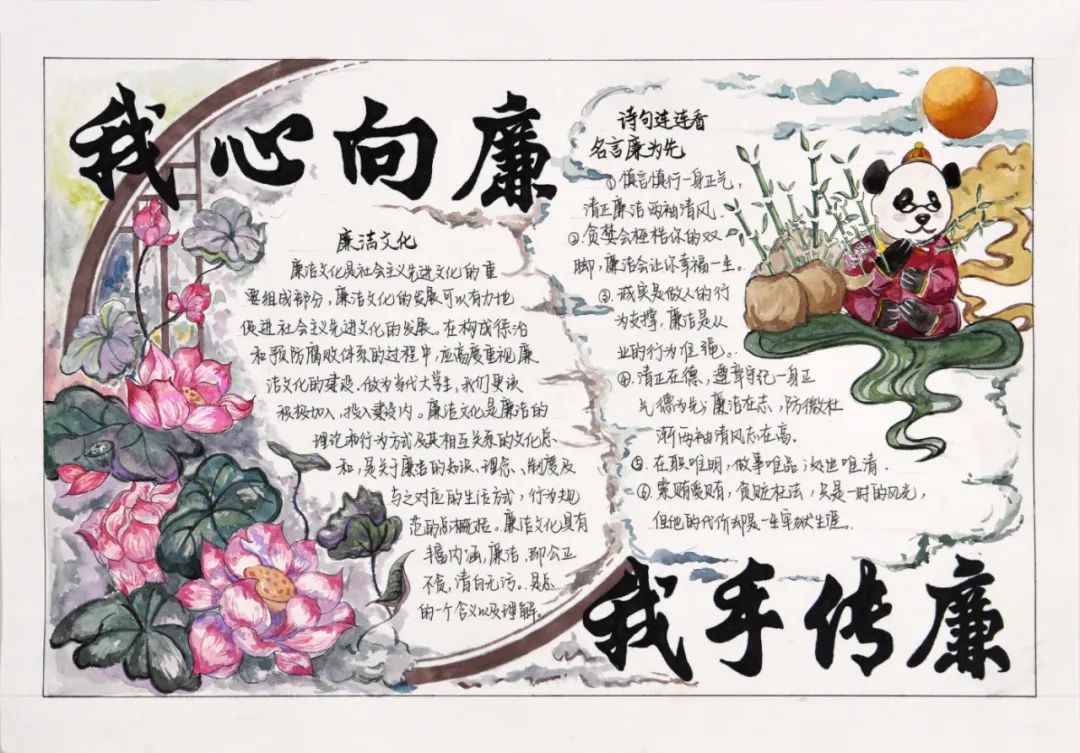 我心向廉
廉洁文化
廉洁文化是社会主义先进文化的重
要组成部分，廉洁文化的发展可以有力地
促进社会主义先进文化的发展。在构成惩治
和预防腐败体系的过程中，应高度重视廉
洁文化的建设。做为当代大学生，我们更该
积极加入，投入建设内。廉洁文化是廉洁的
理论和行为方式及其相互关系的文化总
和，是关于廉洁的知识、理念、制度及
与之对应的生活方式，行为规
范的概括。廉洁文化具有
丰富内涵，廉洁，即公正
不贪，清白无污。是总
的一个含义以及理解。
诗句连连看
名言廉为先
①慎言慎行一身正气，
清正廉洁两袖清风。
②贪婪会桎梏你的双
脚，廉洁会让你幸福一生。
③诚实是做人的行
为支撑，廉洁是从
业的行为准绳。
④清正在德，遵章守纪一身正
气德为先；廉洁在志，防微杜
渐两袖清风志在高。
⑤在职唯明，做事唯品；处世唯清。
⑥索贿受贿，贪赃枉法，只是一时的风光，
但他的代价却是一生牢狱生涯。
我手传廉